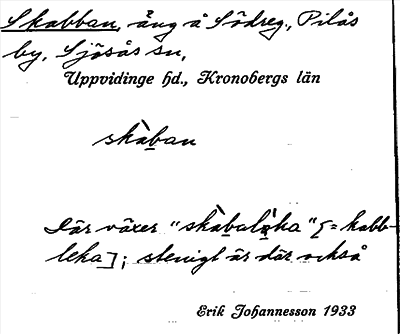 Skabban, äng å Södreg., Pilås
by, Sjösås sn,
Uppvidinge hd., Kronobergs län
skàban
Där växer "skàbalèka" [= kabb-
leka]; stenigt är där också
Erik Johannesson 1933